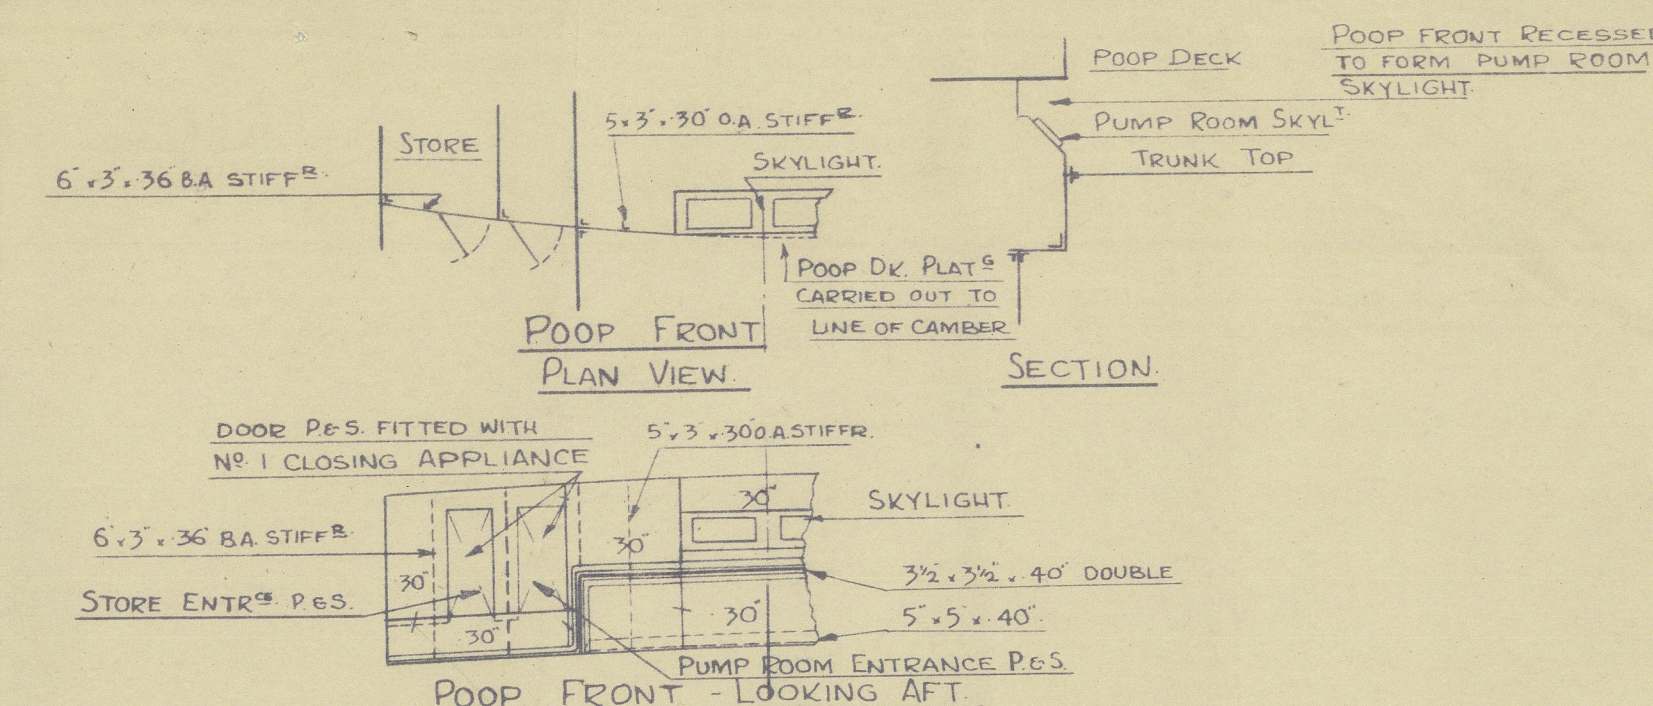 POOP FRONT RECESSED
TO FORM PUMP ROOM
SKYLIGHT.
POOP DECK
PUMP ROOM SKYLT.
TRUNK TOP
5"x3"x.30" O.A. STIFFR.
STORE
SKYLIGHT.
6"x3"x.36 B.A STIFFR.
POOP DK. PLATG
CARRIED OUT TO
LINE OF CAMBER
POOP FRONT
PLAN VIEW.
SECTION.
DOOR P.&S. FITTED WITH
No. 1 CLOSING APPLIANCE
5"x3"x.30 O.A. STIFFR.
30"
SKYLIGHT.
6"x3"x.36" B.A. STIFFR.
30"
3½"x3½"x.40" DOUBLE
30"
STORE ENTRCE P.&S.
.30"
5"x5"x.40"
30"
PUMP ROOM ENTRANCE P.&S.
POOP FRONT - LOOKING AFT.